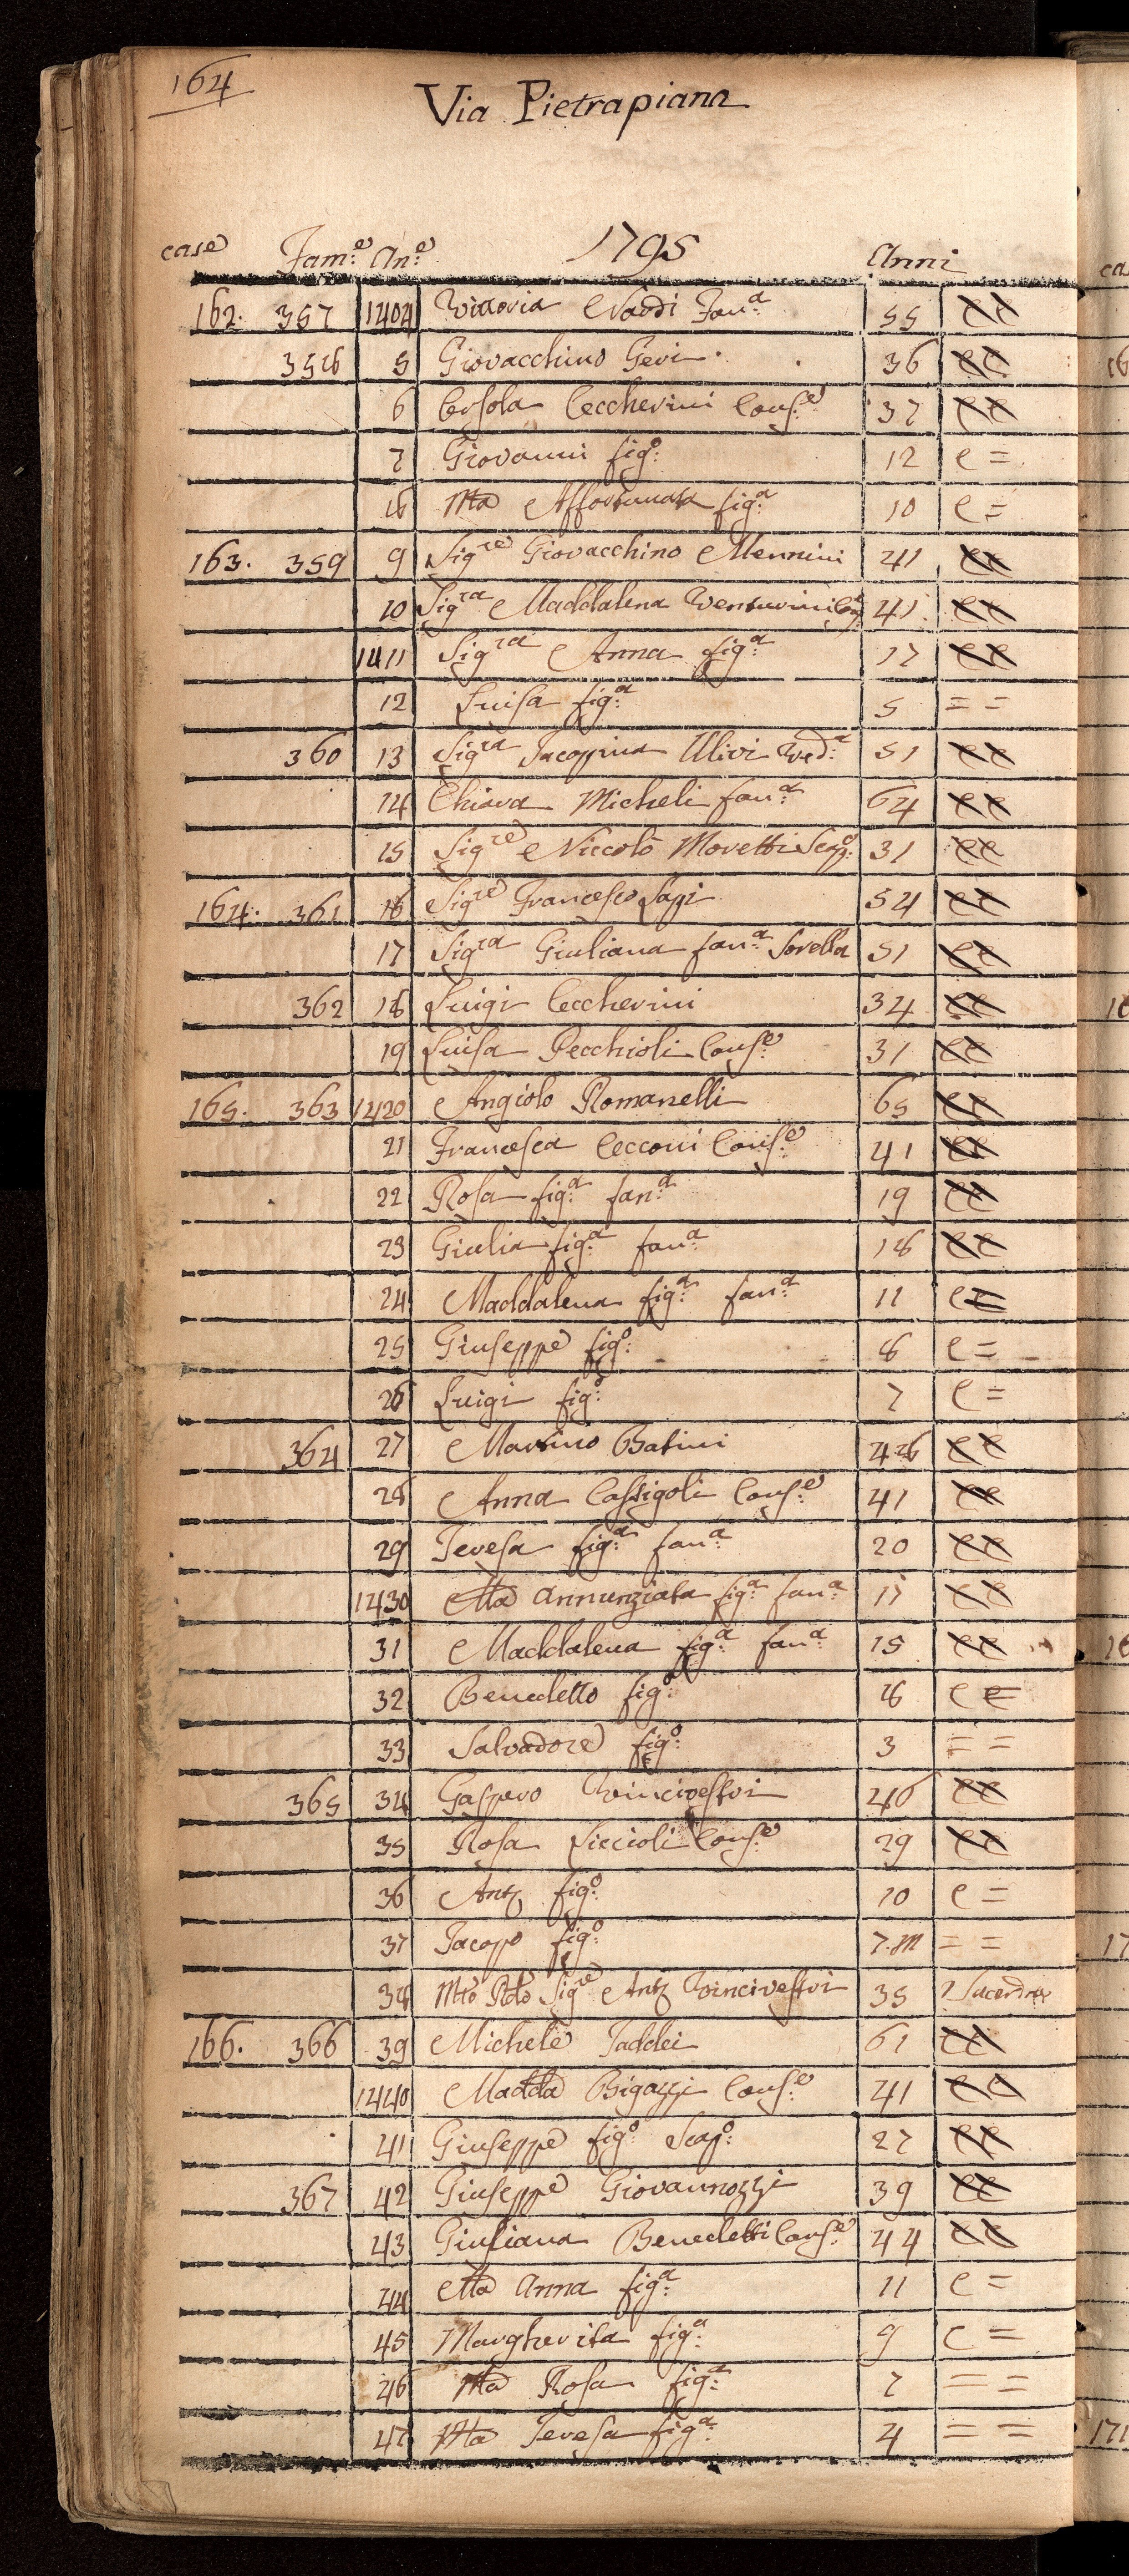 164
Via Pietrapiana
case Fam:e An:e 1795 Anni
162. 357 1404 Vittoria Nardi Fan:a 55 ee
358 5 Giovacchino Geri 36 ee
6 Orsola Ceccherini Cons:e 37 ee
7 Giovanni fig:o 12 e =
8 Ma Affortunata fig:a 10 e =
163. 359 9 Sigre Giovacchino Mennini 41 ee
10 Sigra Maddalena Venturini Cons 41 ee
1411 Sigra Anna fig:a 17 ee
12 Luisa fig:a 5 = =
360 13 Sigra Jacopina Ulivi Ved:a 51 ee
14 Chiara Micheli fan:a 64 ee
15 Sigre Niccolò Moretti Scap:o 31 ee
164. 361 16 Sigre Francesco Lapi 54 ee
17 Sigra Giuliana fan:a Sorella 51 ee
362 18 Luigi Ceccherini 34 ee
19 Luisa Pecchioli Cons:e 31 ee
165. 363 1420 Angiolo Romanelli 65 ee
21 Francesca Cecconi Cons:e 41 ee
22 Rosa fig:a fan:a 19 ee
23 Giulia fig:a fan:a 18 ee
24 Maddalena fig:a fan:a 11 e =
25 Giuseppe fig:o 8 e =
26 Luigi fig:o 7 e =
364 27 Martino Batini 48 ee
28 Anna Cassigoli Cons:e 41 ee
29 Teresa fig:a fan:a 20 ee
1430 Ma Annunziata fig:a fan:a 17 ee
31 Maddalena fig:a fan:a 15 ee
32 Benedetto fig:o 8 e =
33 Salvadore fig:o 3 = =
365 34 Gaspero Vincivestri 40 ee
35 Rosa Liccioli Cons:e 29 ee
36 Anto fig:o 10 e =
37 Jacopo fig:o 7.m = =
38 Mto Rdo Sigre Anto Vincivestri 35 Sacerdote
166. 366 39 Michele Taddei 61 ee
1440 Madda Bigazzi Cons:e 41 ee
41 Giuseppe fig:o Scap:o 27 ee
367 42 Giuseppe Giovannozzi 39 ee
43 Giuliana Benedetti Cons:e 44 ee
44 Ma Anna fig:a 11 e =
45 Margherita fig:a 9 e =
46 Ma Rosa fig:a 7 = =
47 Ma Teresa fig:a 4 = =